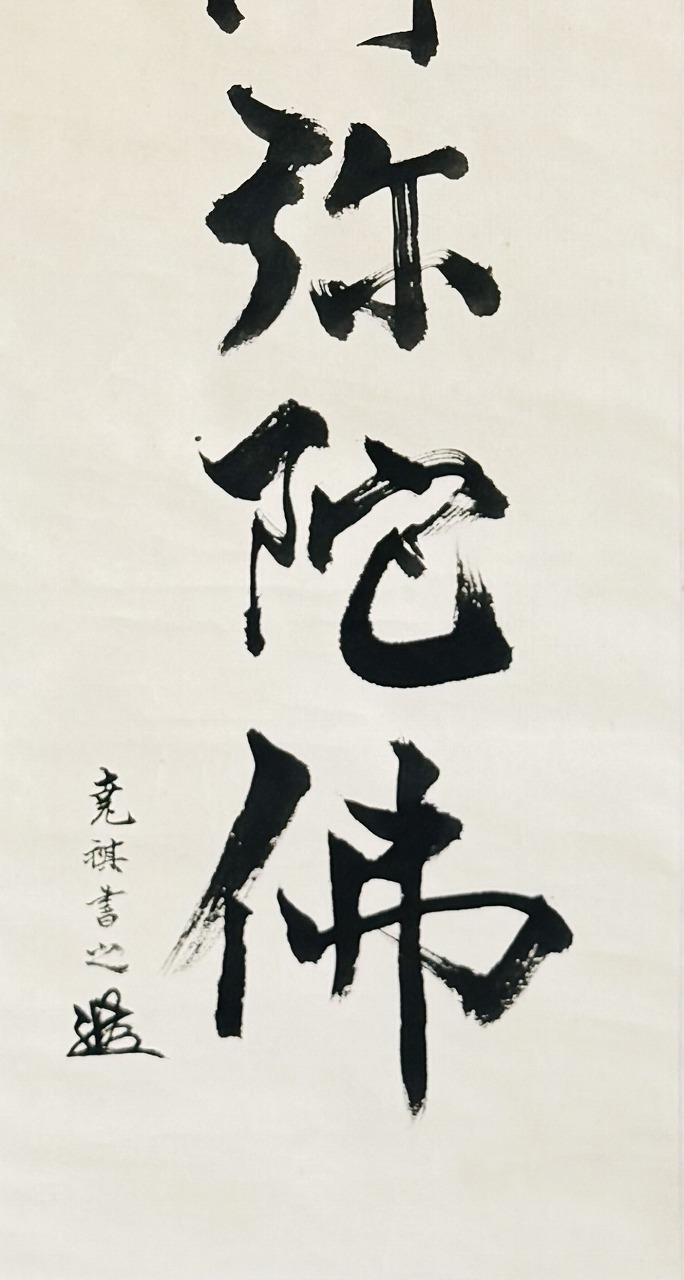 弥陀佛
尭祺書之